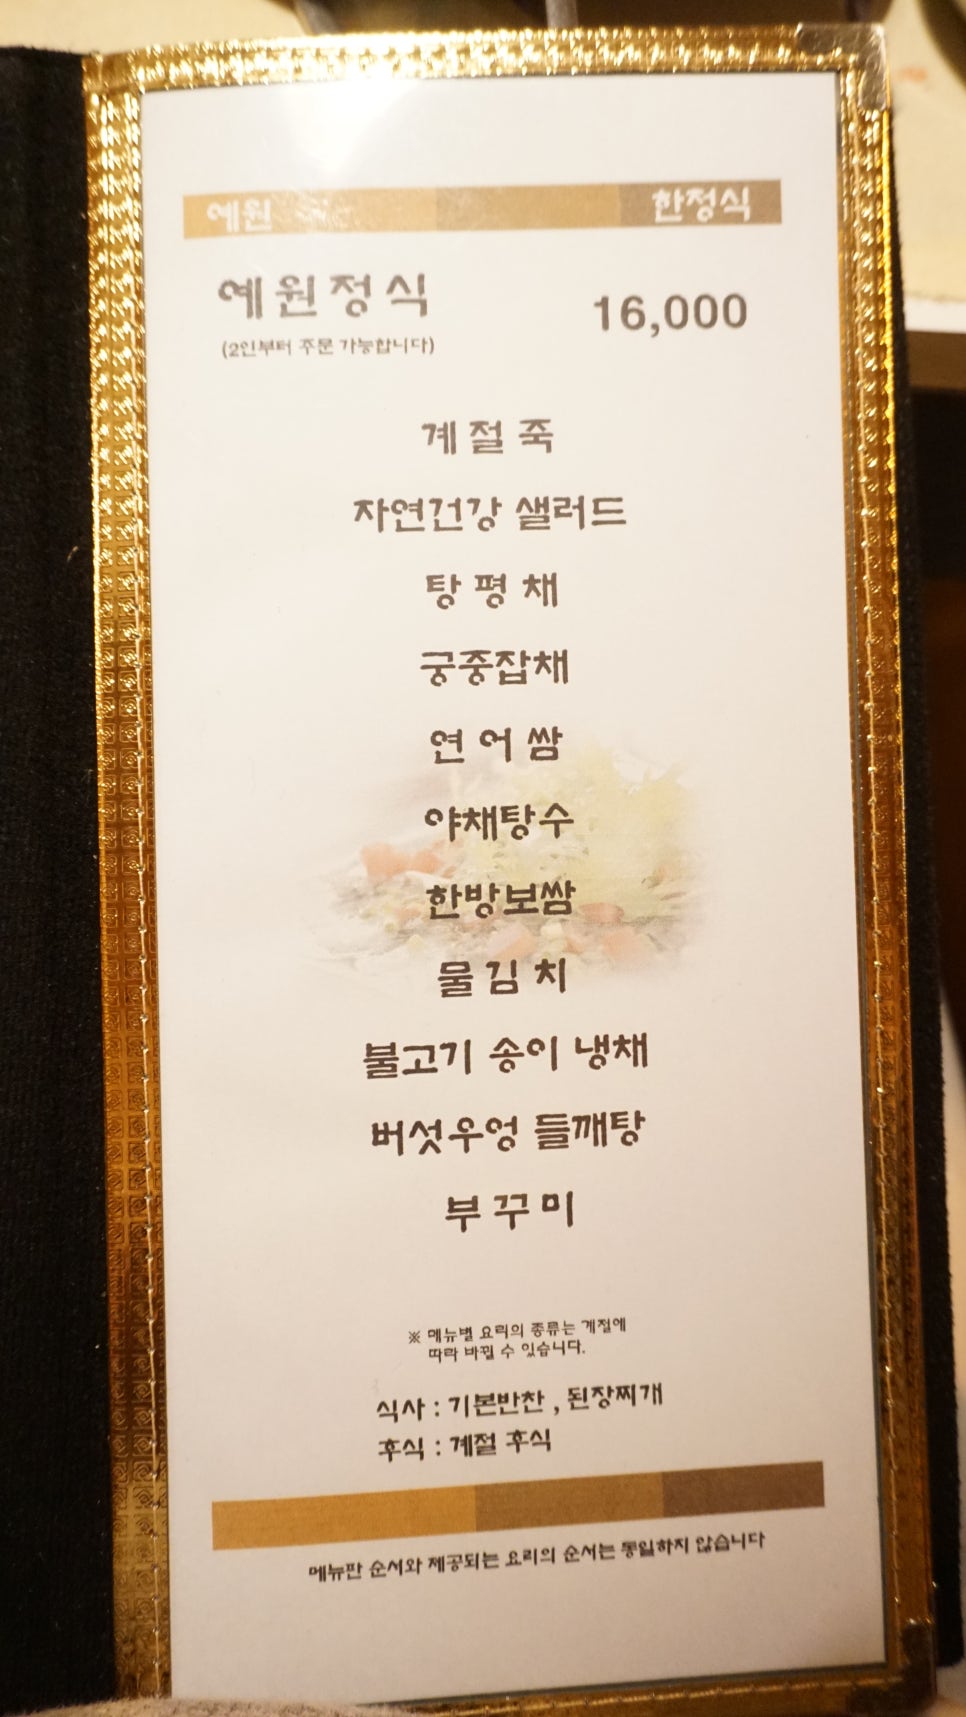 예원 한정식
예원정식 16,000
(2인부터 주문 가능합니다)
계절죽
자연건강 샐러드
탕평채
궁중잡채
연어쌈
야채탕수
한방보쌈
물김치
불고기 송이 냉채
버섯우엉 들깨탕
부꾸미
※ 메뉴별 요리의 종류는 계절에
따라 바뀔 수 있습니다.
식사 : 기본반찬 , 된장찌개
후식 : 계절 후식
메뉴판 순서와 제공되는 요리의 순서는 동일하지 않습니다